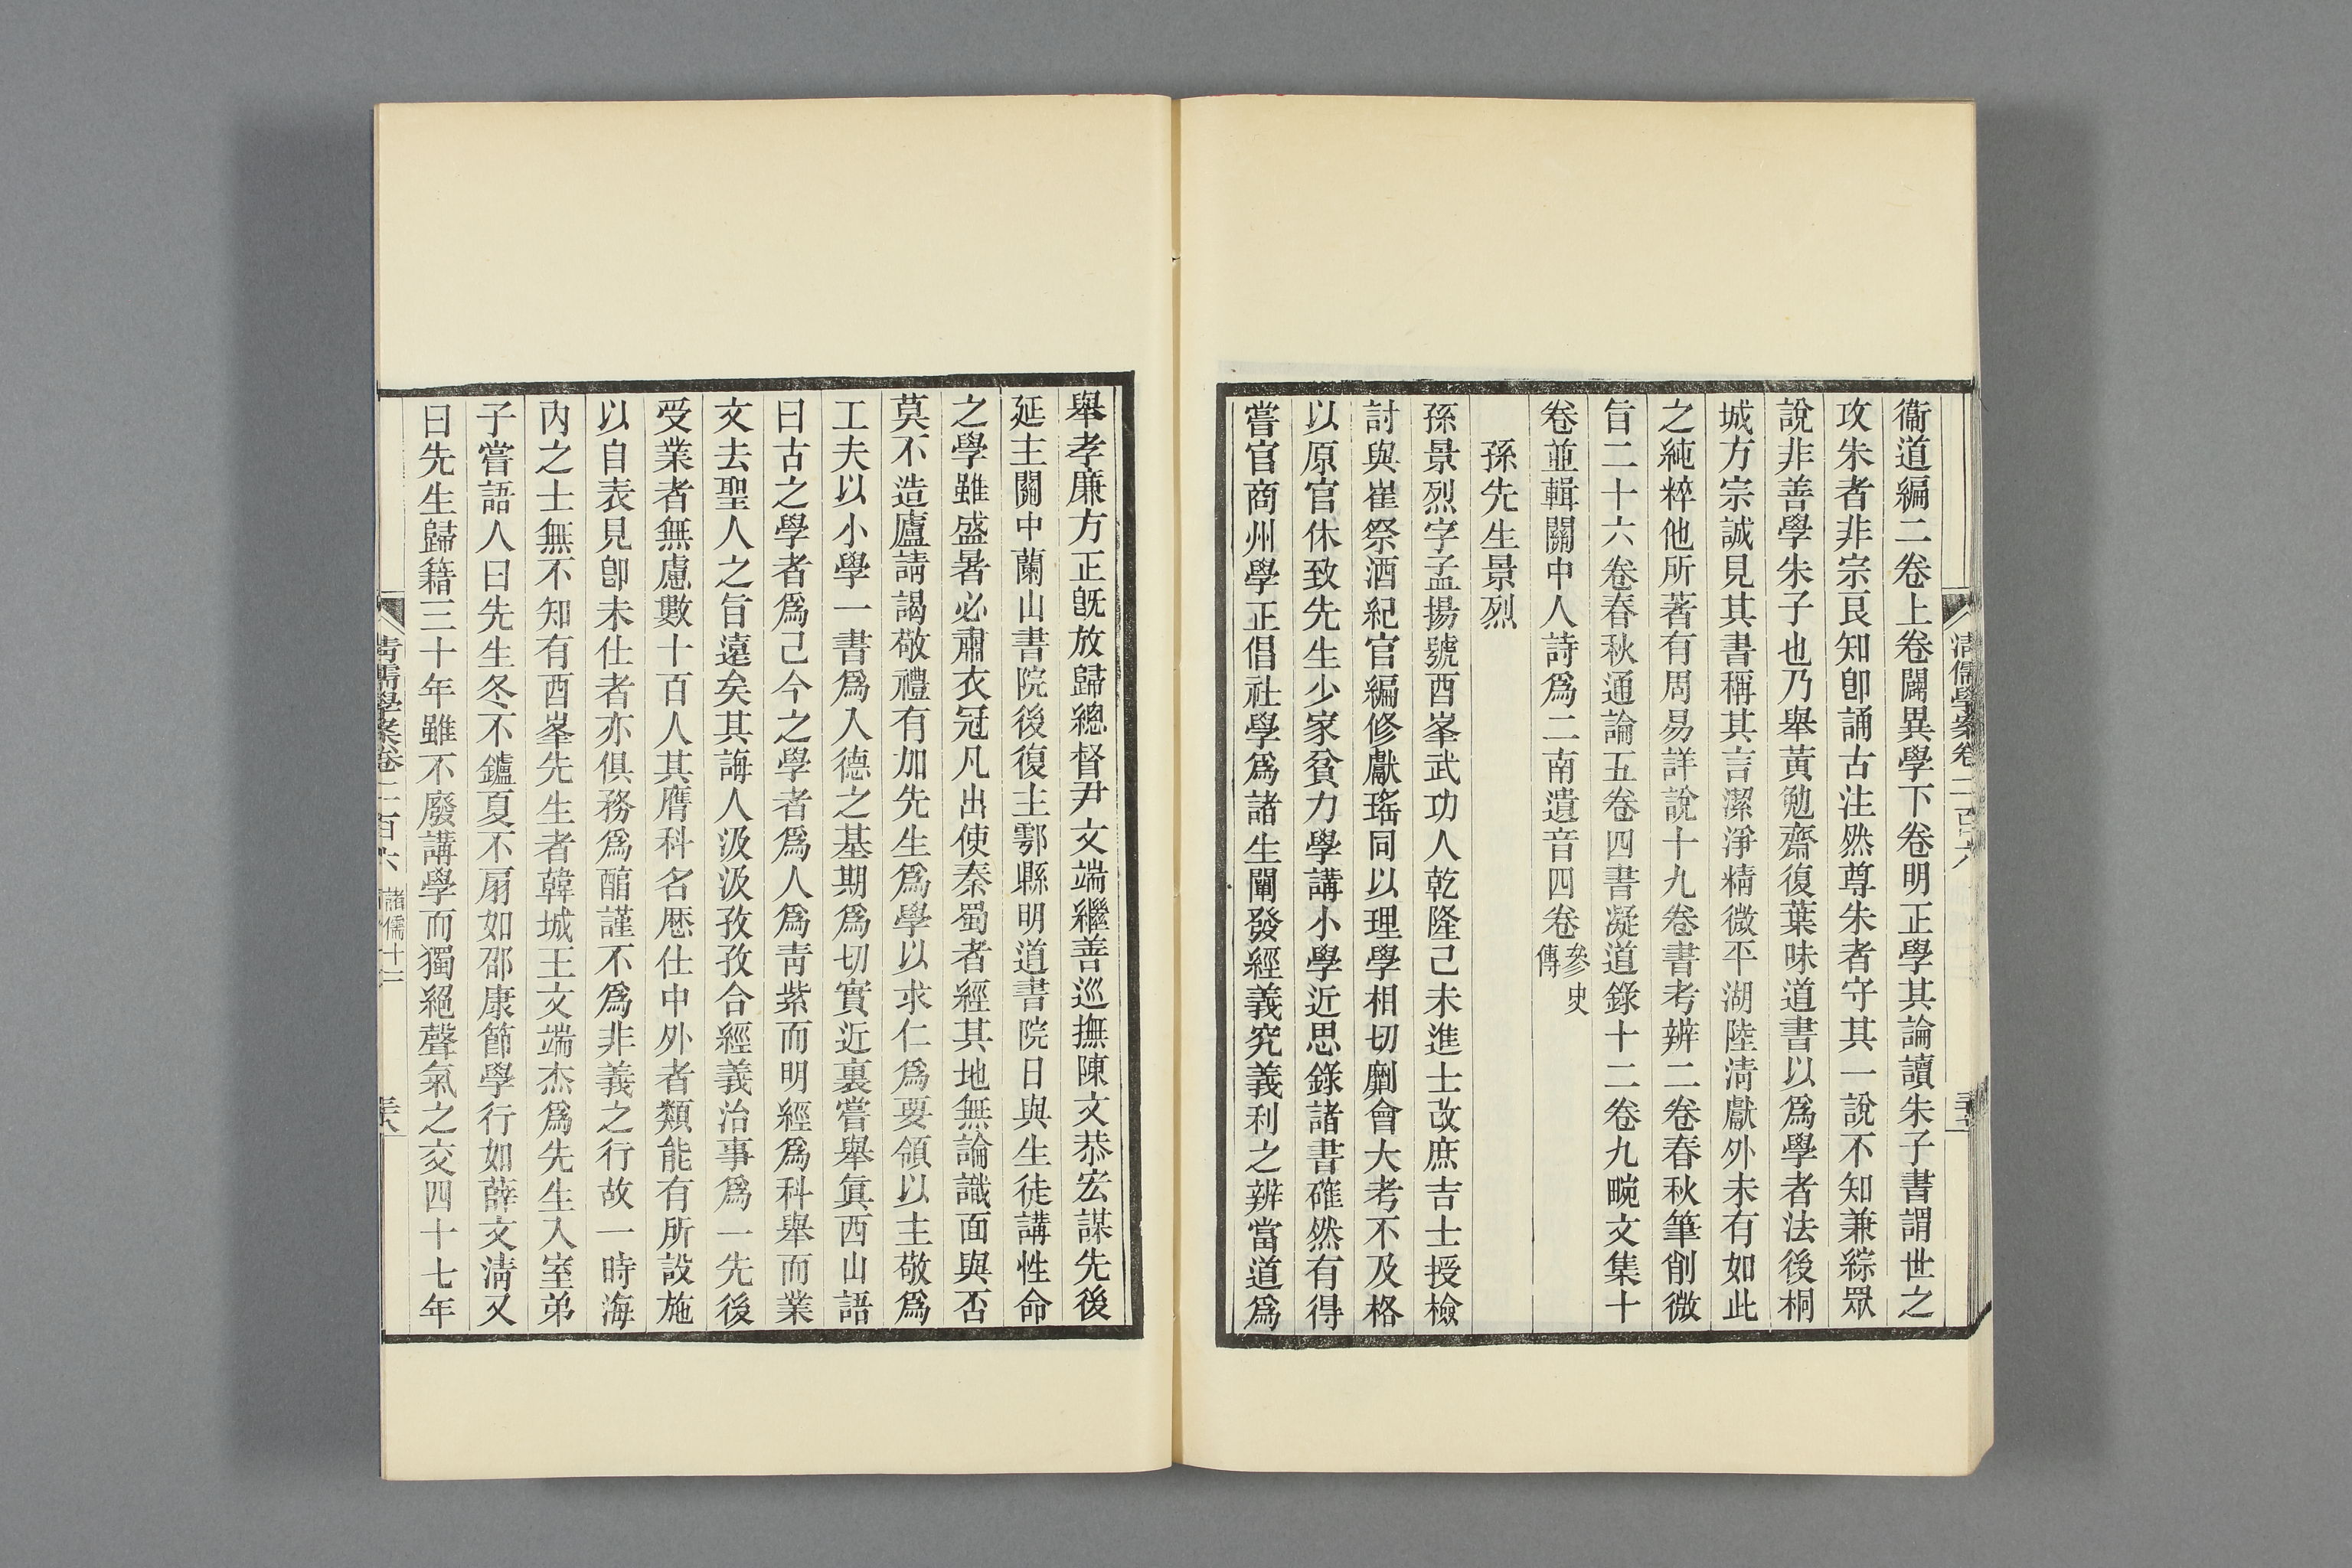 衞道編二卷上卷闢異學下卷明正學其論讀朱子書謂世之
攻朱者非宗良知卽誦古注然尊朱者守其一說不知兼綜眾
說非善學朱子也乃舉黃勉齋復葉味道書以爲學者法後桐
城方宗誠見其書稱其言潔淨精微平湖陸清獻外未有如此
之純粹他所著有周易詳說十九卷書考辨二卷春秋筆削微
旨二十六卷春秋通論五卷四書凝道錄十二卷九畹文集十
卷並輯關中人詩爲二南遺音四卷參史傳
孫先生景烈
孫景烈字孟揚號酉峯武功人乾隆己未進士改庶吉士授檢
討與崔祭酒紀官編修獻瑤同以理學相切劘會大考不及格
以原官休致先生少家貧力學講小學近思錄諸書確然有得
嘗官商州學正倡社學爲諸生闡發經義究義利之辨當道爲
清儒學案卷二百六
舉孝廉方正旣放歸總督尹文端繼善巡撫陳文恭宏謀先後
延主關中蘭山書院後復主鄠縣明道書院日與生徒講性命
之學雖盛暑必肅衣冠凡出使秦蜀者經其地無論識面與否
莫不造廬請謁敬禮有加先生爲學以求仁爲要領以主敬爲
工夫以小學一書爲入德之基期爲切實近裏嘗舉眞西山語
曰古之學者爲己今之學者爲人爲靑紫而明經爲科舉而業
文去聖人之旨遠矣其誨人汲汲孜孜合經義治事爲一先後
受業者無慮數十百人其膺科名歷仕中外者類能有所設施
以自表見卽未仕者亦俱務爲醕謹不爲非義之行故一時海
內之士無不知有酉峯先生者韓城王文端杰爲先生入室弟
子嘗語人曰先生冬不鑪夏不扇如邵康節學行如薛文清又
曰先生歸籍三十年雖不廢講學而獨絕聲氣之交四十七年
清儒學案卷二百六 諸儒十二